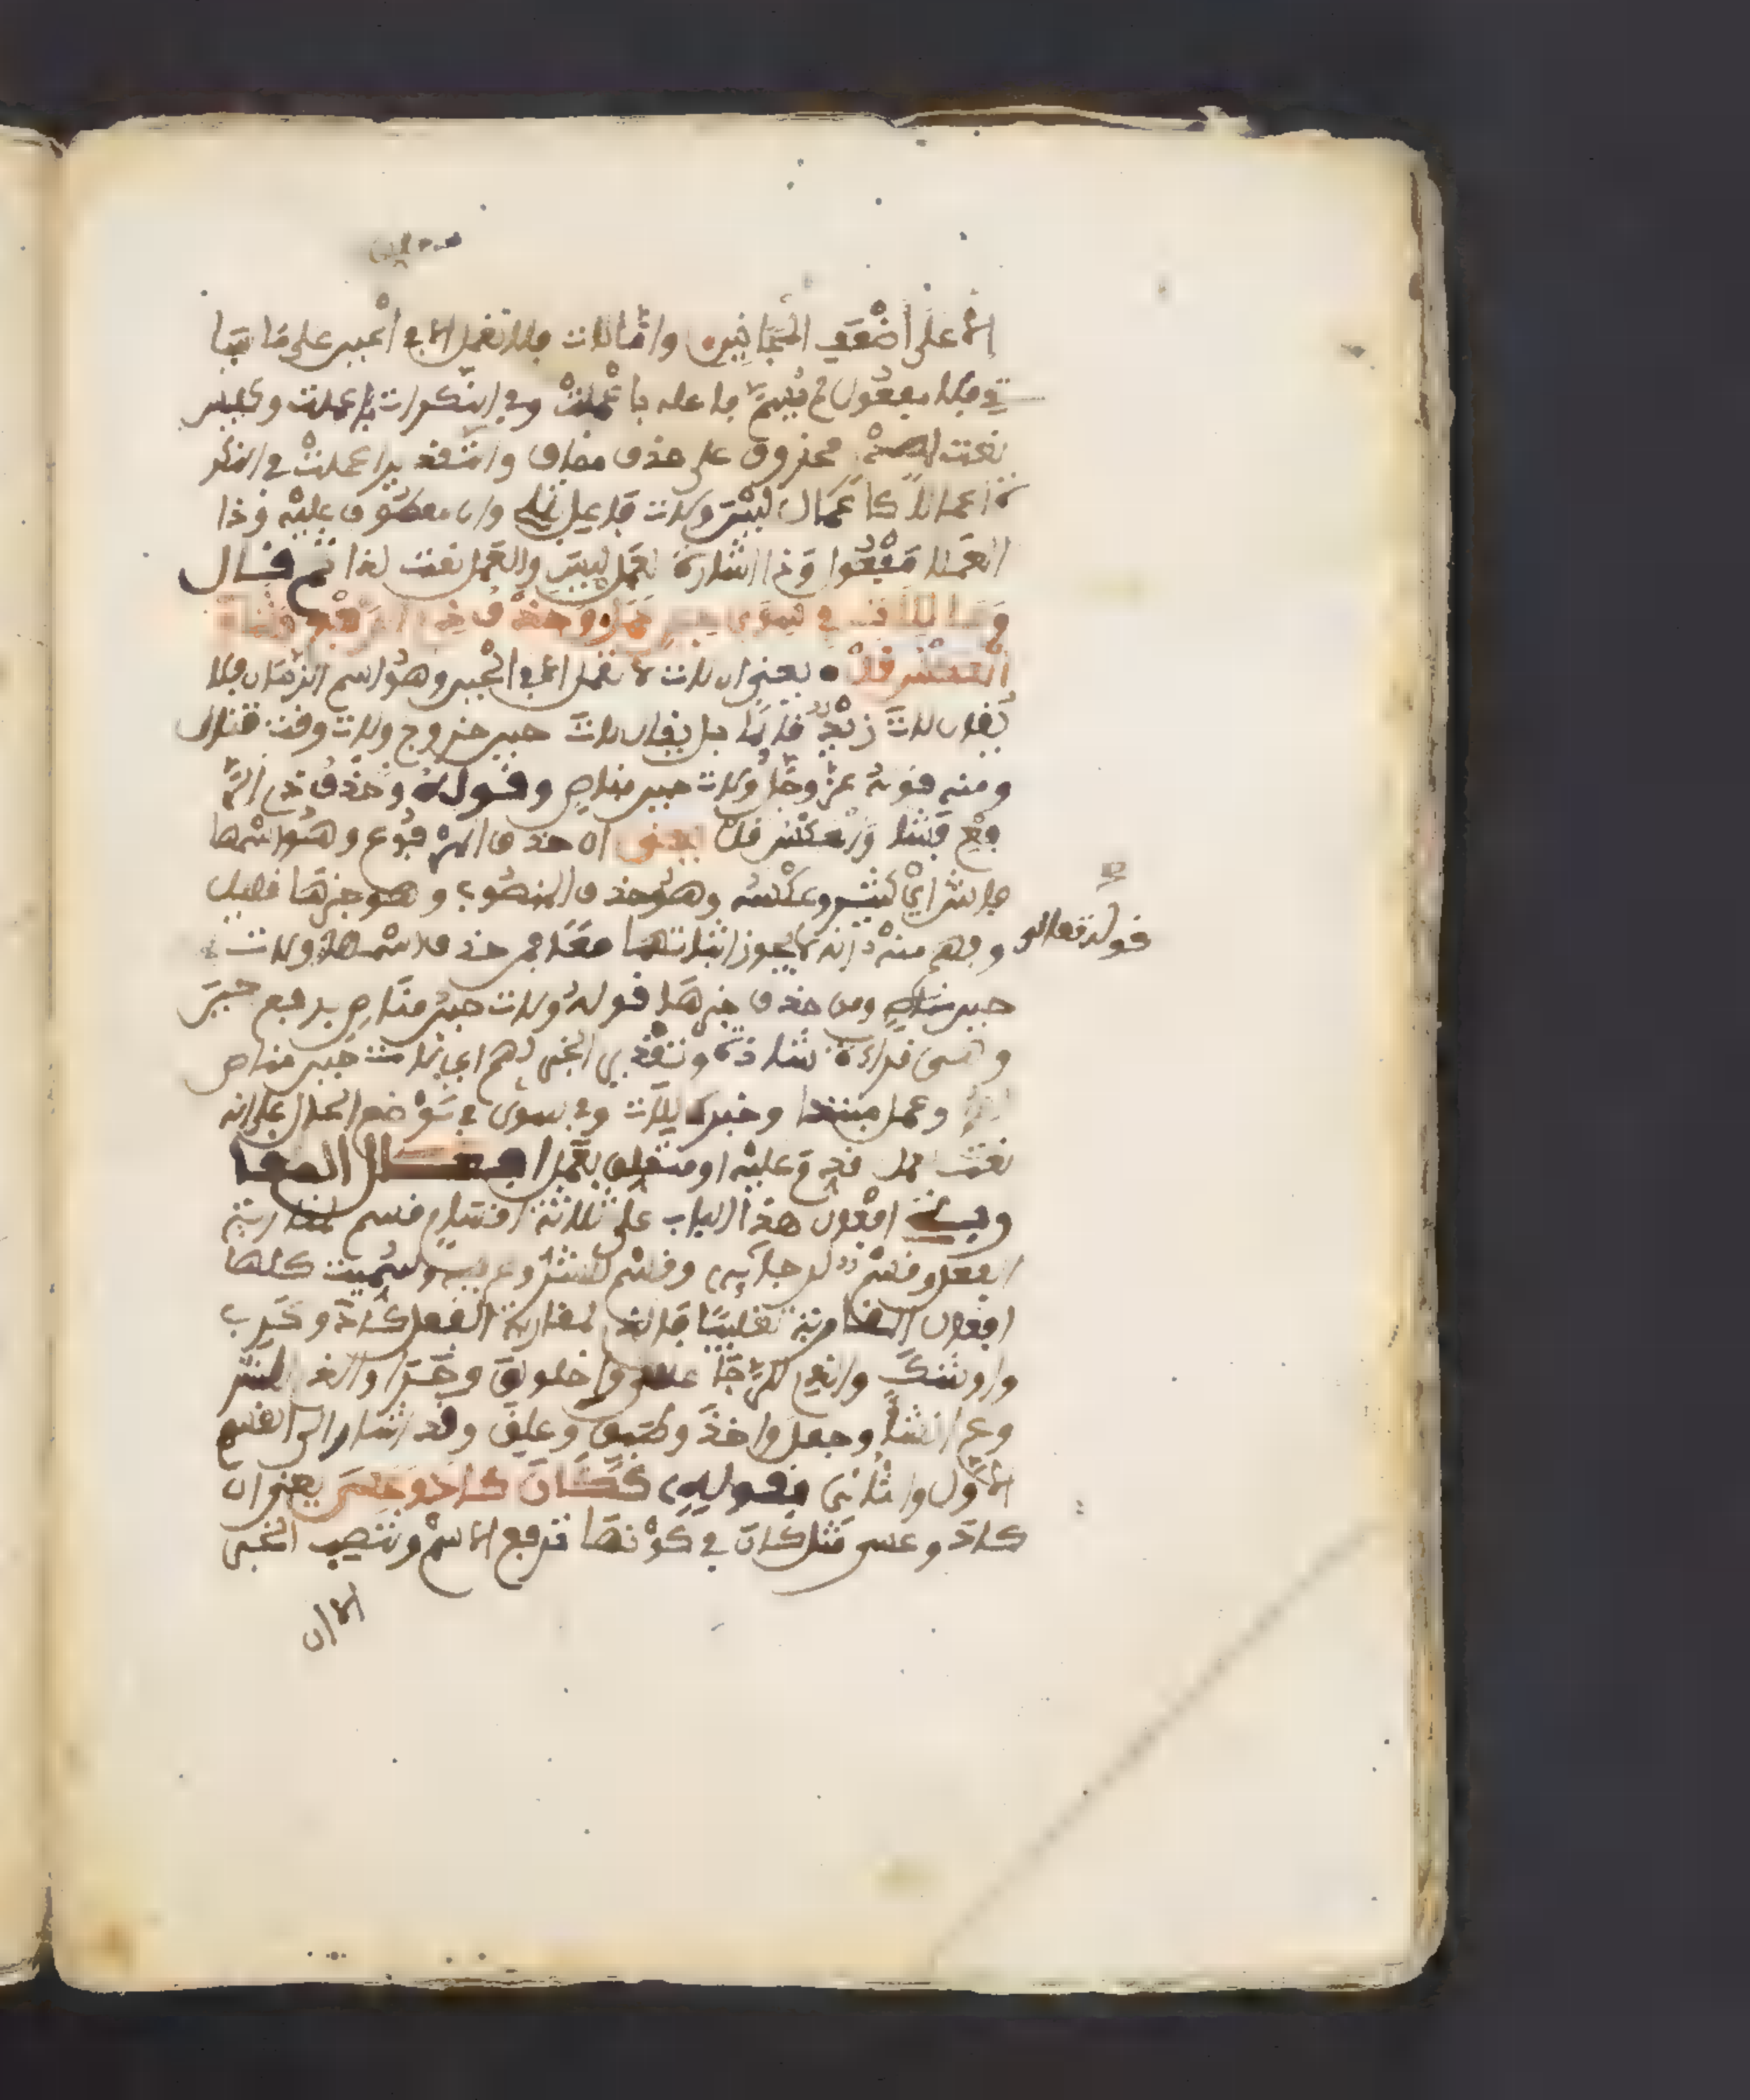 الا على أضعف المجانين وأما لات فلا تعمل الا في الحين على ما سيا
تي فلا مفعول لم يسم فاعله باعملت وفي النكرات باعملت وكليس
نعت لمصدر محذوف على حذف مضاف والتقدير اعملت في النكر
ة اعمالا كاعمال ليس ولات فاعل بتلي وان معطوف عليه وذا
العملا مفعول وذا اشارة لعمل ليس والعمل نعت لذا ثم قال
وما للات في سوى حين عمل وحذف ذي الرفع فشا
والعكس قل يعني ان لات لا تعمل الا في الحين وهو اسم الزمان فلا
يقال لات زيد قائما بل يقال لات حين خروج ولات وقت قتال
ومنه قوله عز وجل ولات حين مناص وقوله وحذف ذي الر
فع فشا والعكس قل يعني ان حذف المرفوع وهو اسمها
فاش أي كثير وعكسه وهو حذف المنصوب وهو خبرها قليل
وفهم منه انه لا يجوز اثباتهما معا فمن حذف اسمها ولات
قوله تعالى
حين مناص ومن حذف خبرها قوله ولات حين مناص برفع حين
وهي قراءة شاذة وتقدير الخبر لهم اي لات حين مناص
وعمل مبتدا وخبره للات وفي سوى في موضع الحال على انه
نعت عمل قدم عليه او متعلق بعمل افعال المقا
ربة افعال هذا الباب على ثلاثة اقسام قسم لمقاربة
الفعل وقسم لرجائه وقسم للشروع فيه وسميت كلها
افعال المقاربة تغليبا فالذي لمقاربة الفعل كاد وكرب
واوشك والذي للرجا عسى واخلولق وحرا والذي للشر
وع انشأ وجعل واخذ وطفق وعلق وقد اشار الى القسم
الاول والثاني بقوله ككان كاد وعسى يعني ان
كاد وعسى مثل كان في كونها ترفع الاسم وتنصب الخبر
الا ان